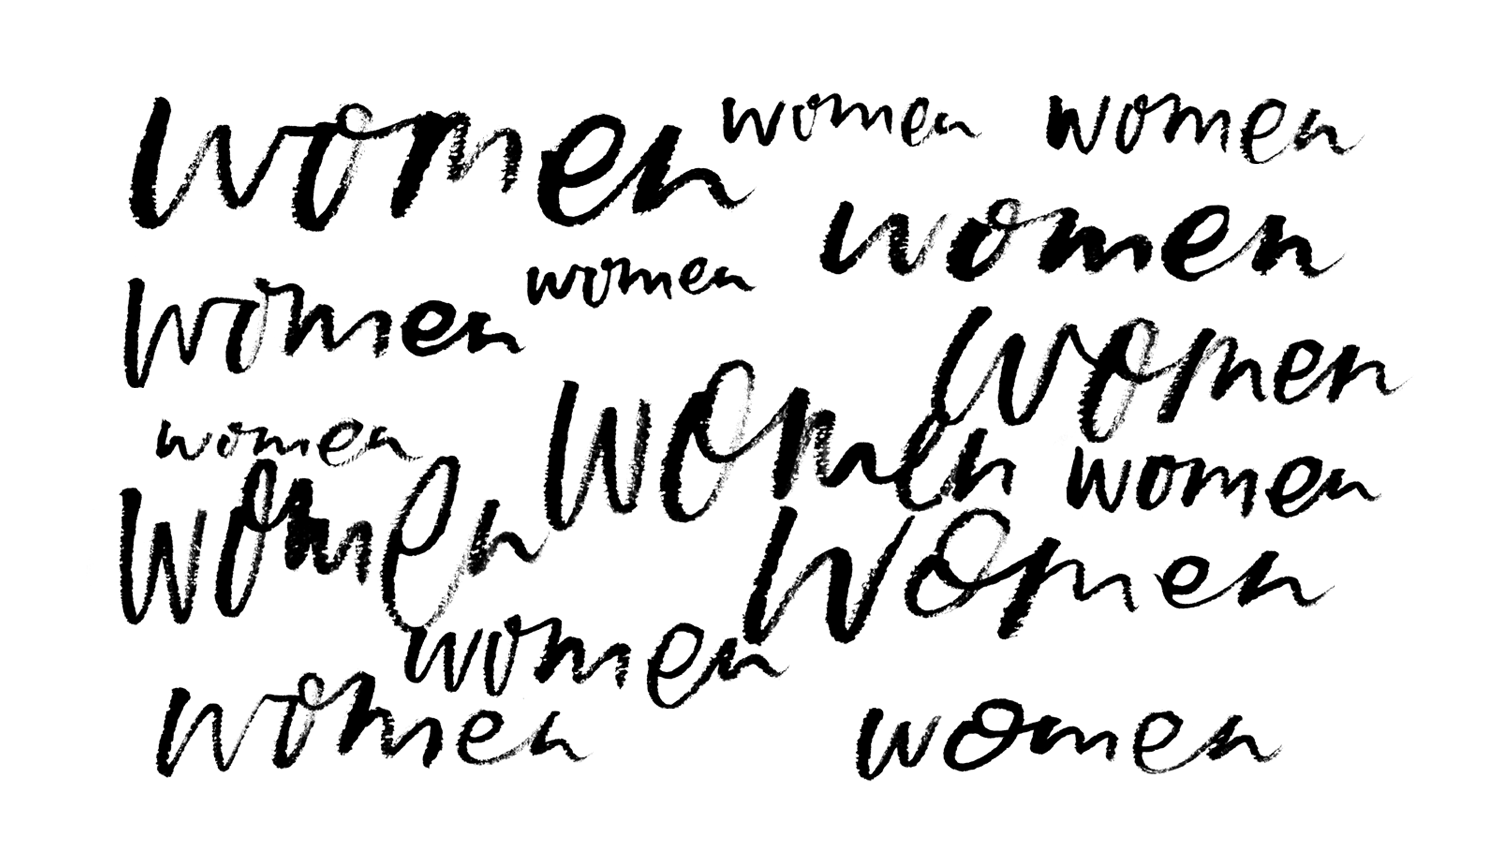 women women women
women
women women
women
women
women women
women women
women
women
women women